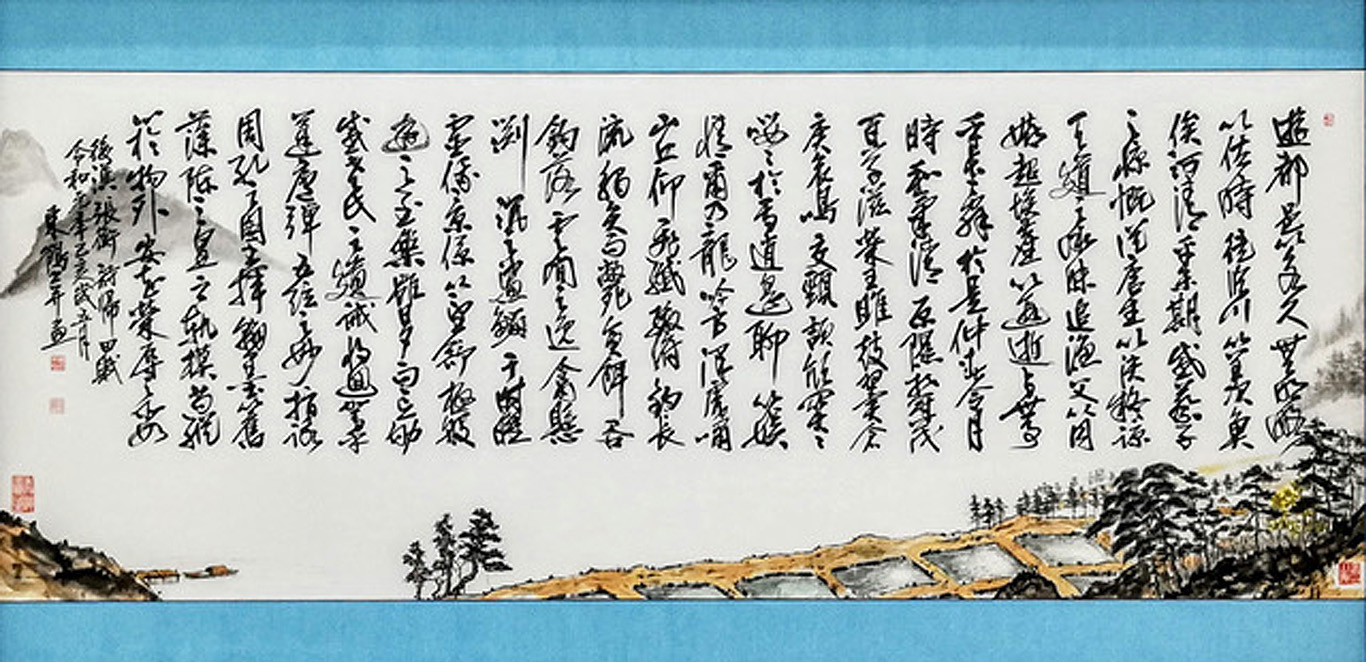 遊都邑以永久無明略
以佐時徒臨川以羨魚
俟河清乎未期感蔡子
之慷慨從唐生以決疑諒
天道之微昧追漁父以同
嬉超埃塵以遐逝與世事
乎長辭於是仲春令月
時和氣清原隰鬱茂
百草滋榮王雎鼓翼倉
庚哀鳴交頸頡頏關關
嚶嚶於焉逍遙聊以娛
情爾乃龍吟方澤虎嘯
山丘仰飛纖繳俯釣長
流觸矢而斃貪餌吞
鉤落雲間之逸禽懸
淵沉之魦鰡于時曜
靈俄景係以望舒極般
遊之至樂雖日夕而忘劬
感老氏之遺誡將迴駕乎
蓬廬彈五絃之妙指詠
周孔之圖書揮翰墨以奮
藻陳三皇之軌模苟縱心
於物外安知榮辱之所如
後漢張衡詩歸田賦
令和元年己亥歲五月